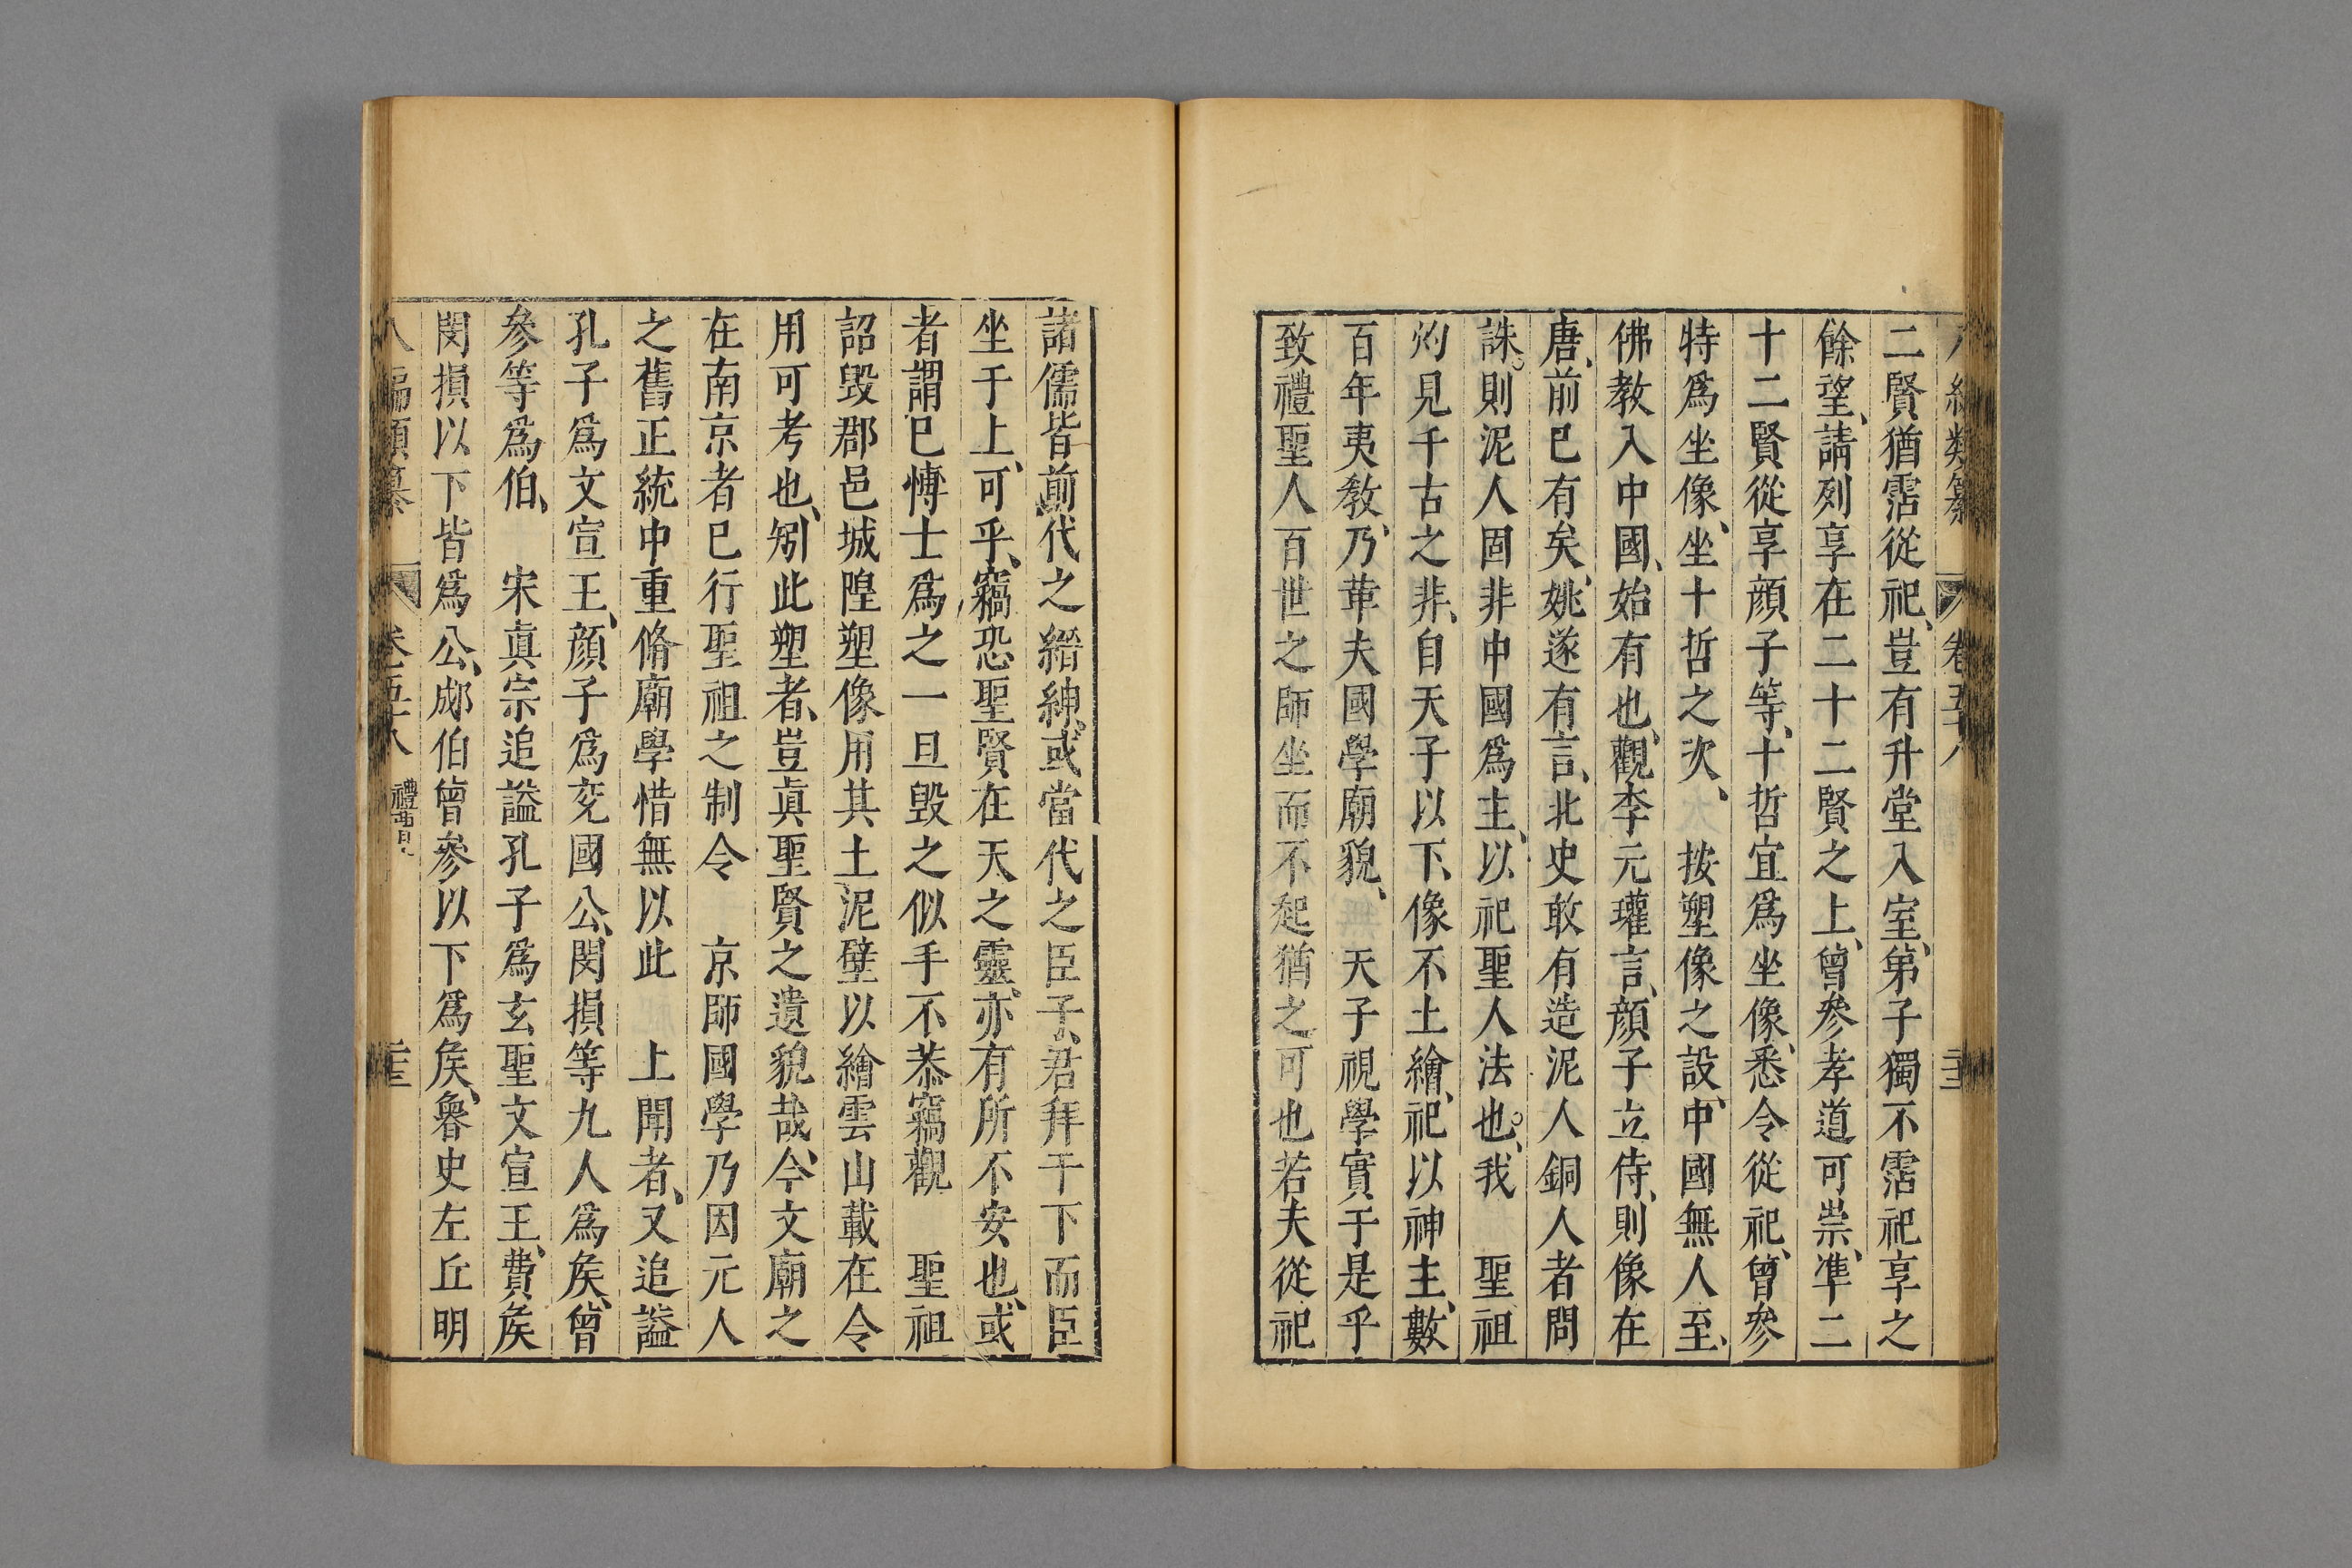 二賢猶霑從祀、豈有升堂入室、弟子獨不霑祀享之
餘望、請列享在二十二賢之上、曾參孝道可崇、準二
十二賢從享顔子等、十哲宜爲坐像、悉令從祀、曾參
特爲坐像、坐十哲之次、 按塑像之設、中國無人至、
佛教入中國、始有也、觀李元瓘言、顔子立侍、則像在
唐、前已有矣、姚遂有言、北史敢有造泥人銅人者問
誅。則泥人固非中國爲主、以祀聖人法也。我 聖祖
灼見千古之非、自天子以下、像不土繪、祀以神主、數
百年夷教、乃革夫國學廟貌、 天子視學實于是乎
致禮聖人百世之師坐而不起猶之可也若夫從祀
諸儒皆前代之縉紳、或當代之臣子、君拜于下而臣
坐于上、可乎、竊恐聖賢在天之靈、亦有所不安也、或
者謂已慱士爲之一旦毀之似乎不恭竊觀 聖祖
詔毀郡邑城隍塑像用其土泥壁以繪雲山載在令
用可考也、矧此塑者、豈眞聖賢之遺貌哉、今文廟之
在南京者已行聖祖之制今 京師國學乃因元人
之舊正統中重脩廟學惜無以此 上聞者、又追謚
孔子爲文宣王、顔子爲兗國公、閔損等九人爲矦、曾
參等爲伯、 宋眞宗追謚孔子爲玄聖文宣王、費矦
閔損以下皆爲公、郕伯曾參以下爲矦、魯史左丘明
八編類纂 卷五十八 二十三